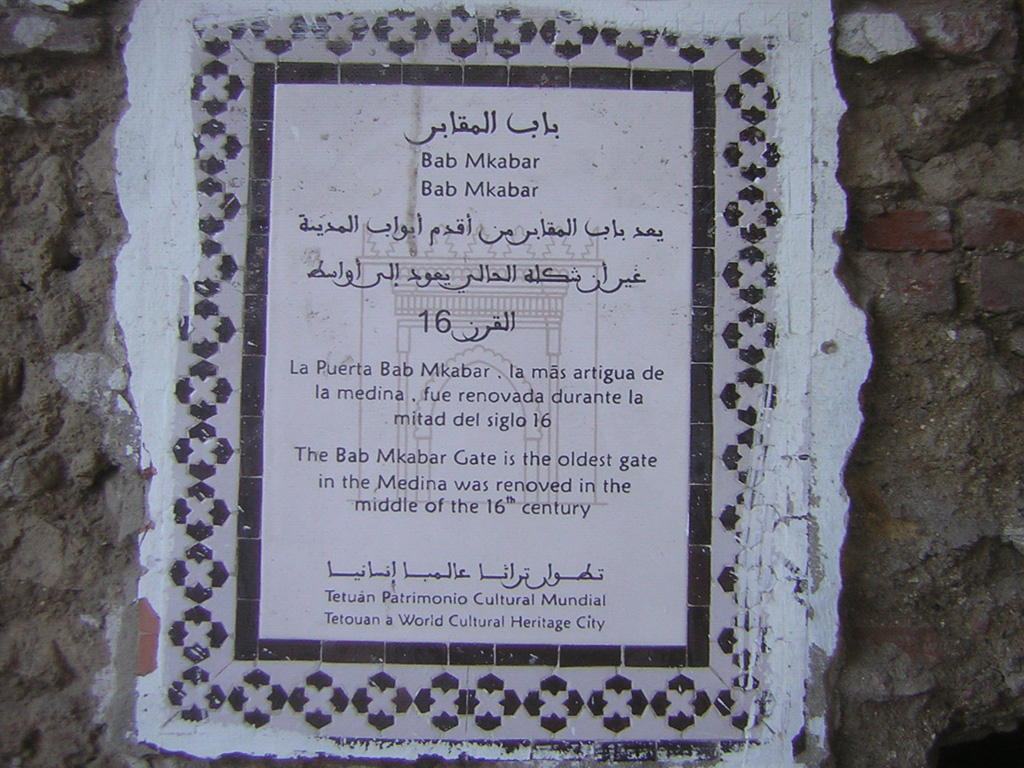 باب المقابر
Bab Mkabar
Bab Mkabar
يعد باب المقابر من أقدم أبواب المدينة
غير أن شكله الحالي يعود إلى أواسط
القرن 16
La Puerta Bab Mkabar . la más artigua de
la medina . fue renovada durante la
mitad del siglo 16
The Bab Mkabar Gate is the oldest gate
in the Medina was renoved in the
middle of the 16th century
تطـوان تراثـا عالميـا إنسانيـا
Tetuán Patrimonio Cultural Mundial
Tetouan a World Cultural Heritage City